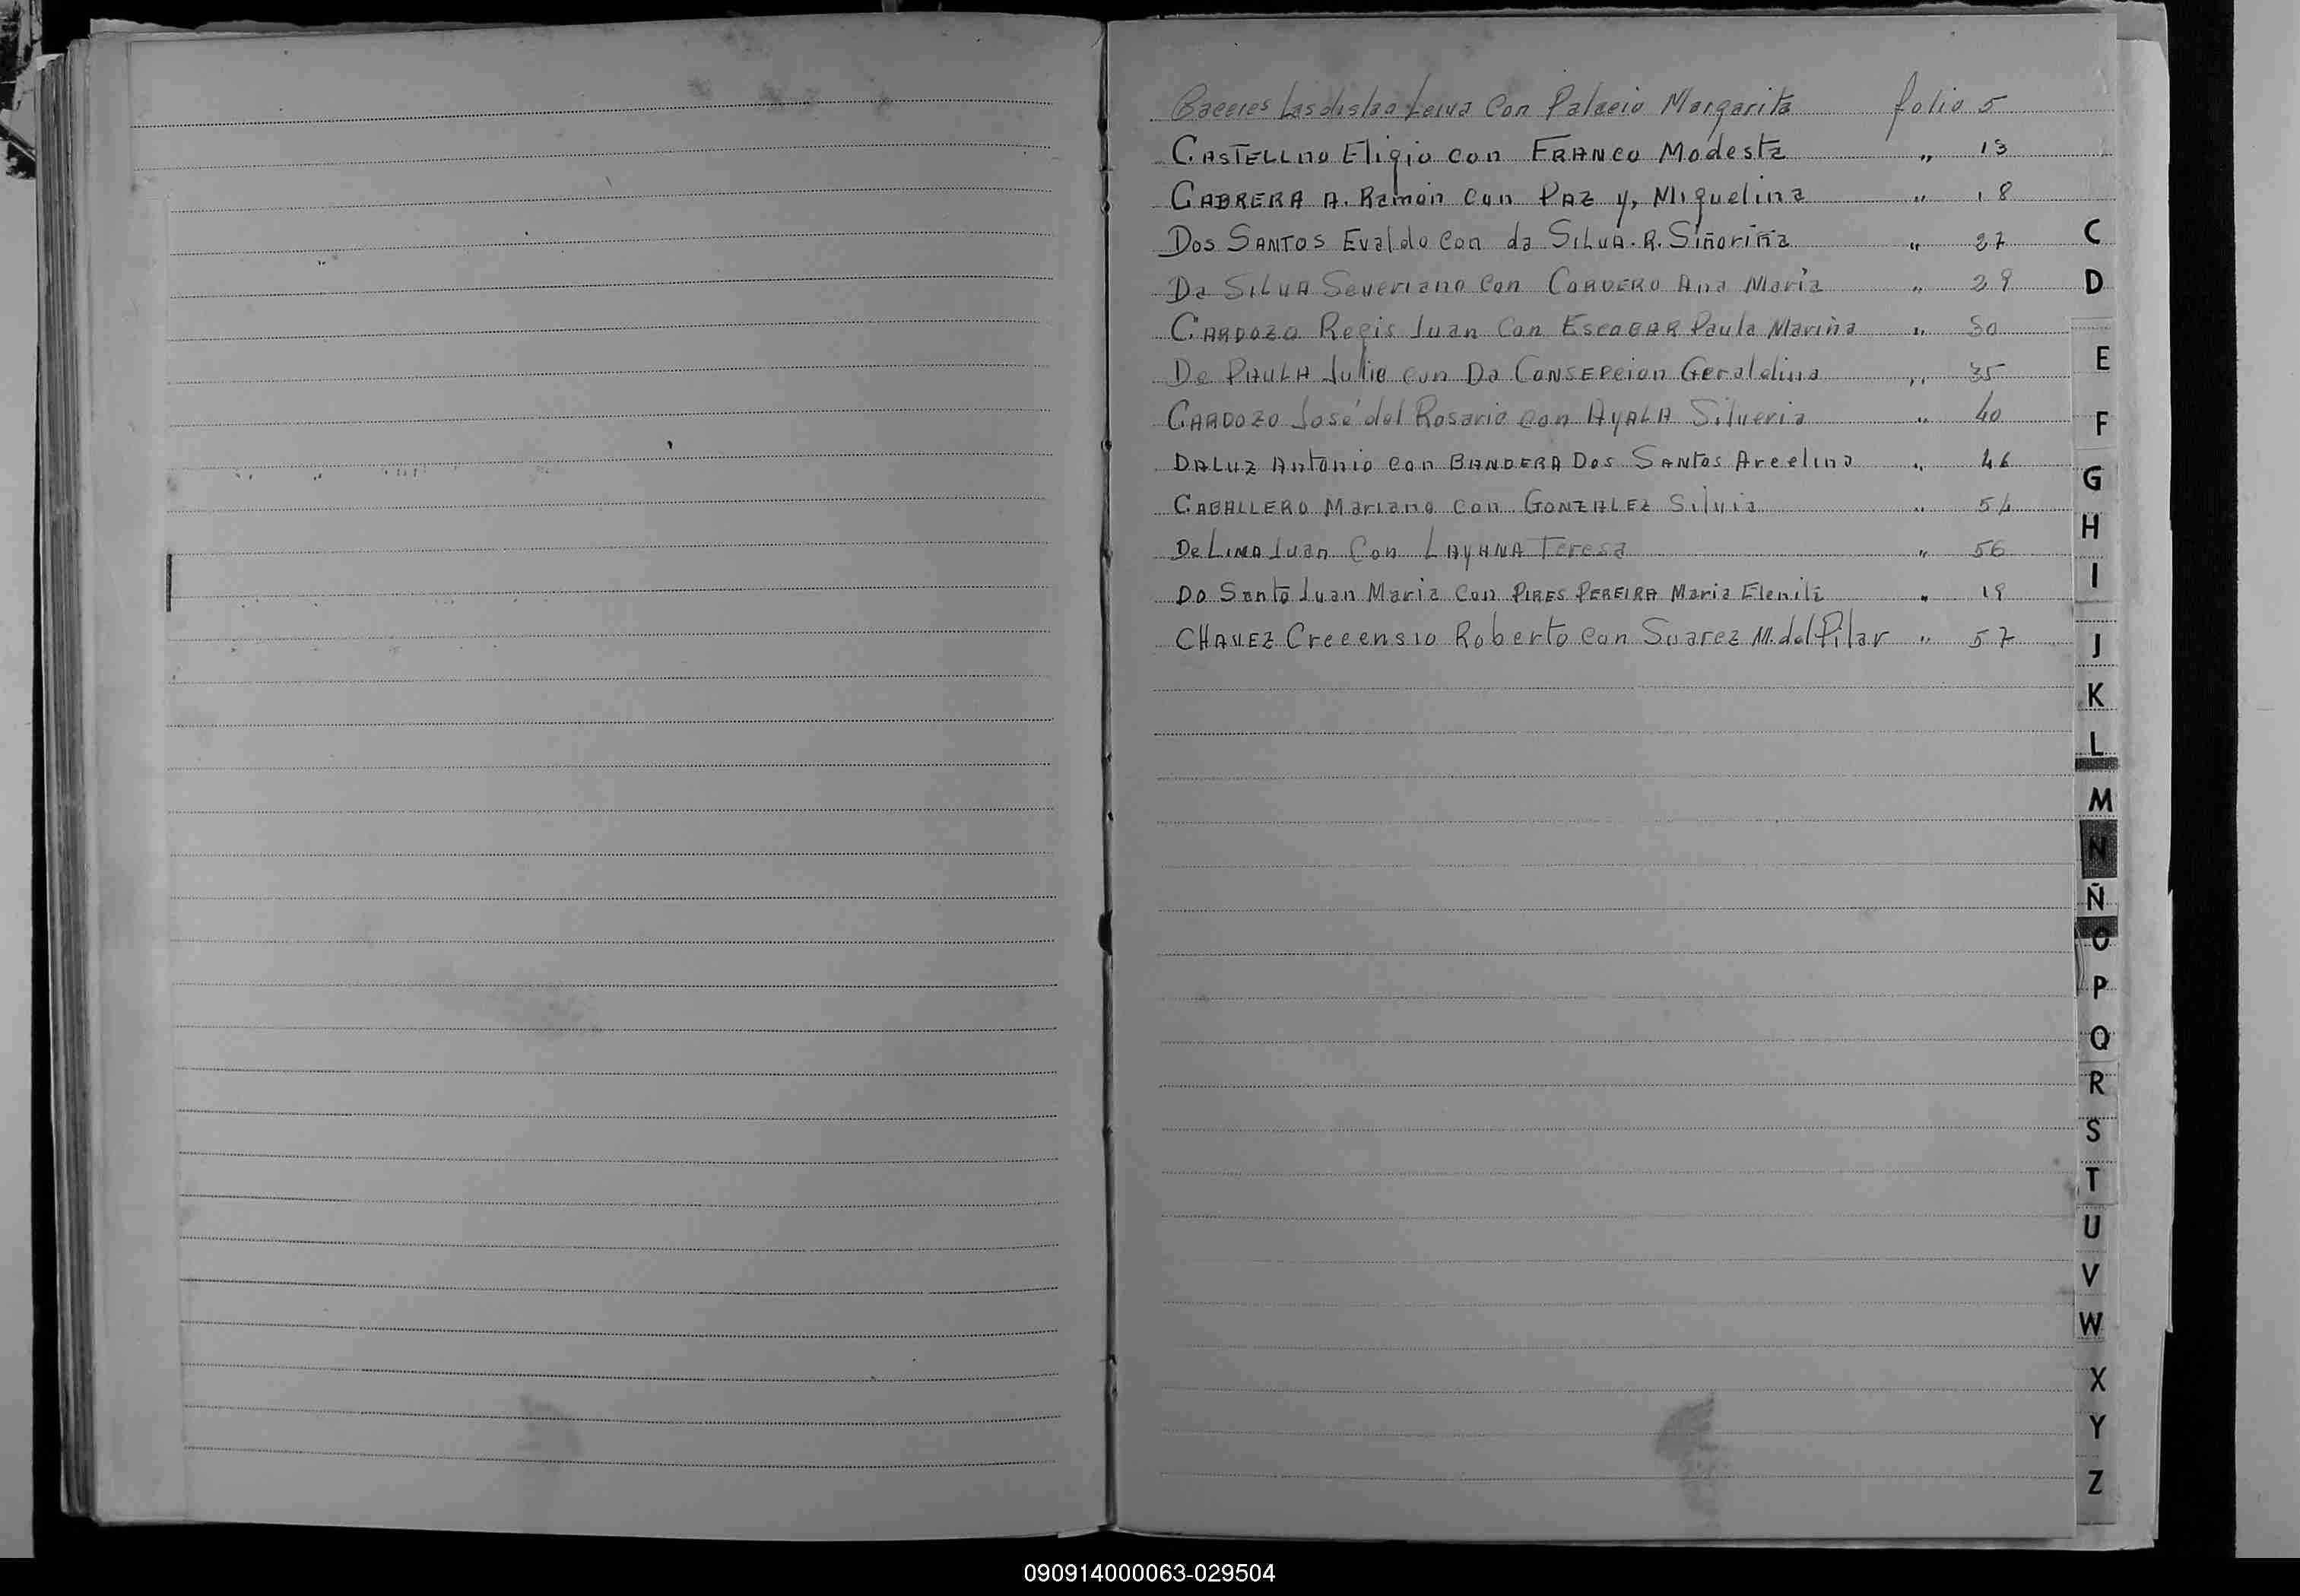 Caceres Lasdislao Leiva Con Palacio Margarita folio 5
CASTELLno Eligio con FRANco Modesta „ 13
CABRERA A. Ramón con PAZ y, Miquelina „ 18
Dos SANTOS Evaldo Con da SILVA. R. Siñoriña „ 27
Da SILVA Severiano Con CORDERO Ana María „ 29
CARDOZO Regis Juan Con EscoBAR Paula Mariña „ 30
De PAULA Julio con Da CONSEPcion Geraldina „ 35
CARDOZO José del Rosario con AyALA Silveria „ 40
DALUZ Antonio con BANDERA Dos SANTos Arcelina „ 46
CABALLERO Mariano con GONZALEZ Silvia „ 54
De LIMA Juan Con LAyANA Teresa „ 56
DO Santo Juan Maria Con PIRES PEREIRA Maria Elenita „ 19
CHAVEZ Crecensio Roberto con Suarez M. del Pilar „ 57
C
D
E
F
G
H
I
J
K
L
M
N
Ñ
O
P
Q
R
S
T
U
V
W
X
Y
Z
090914000063-029504